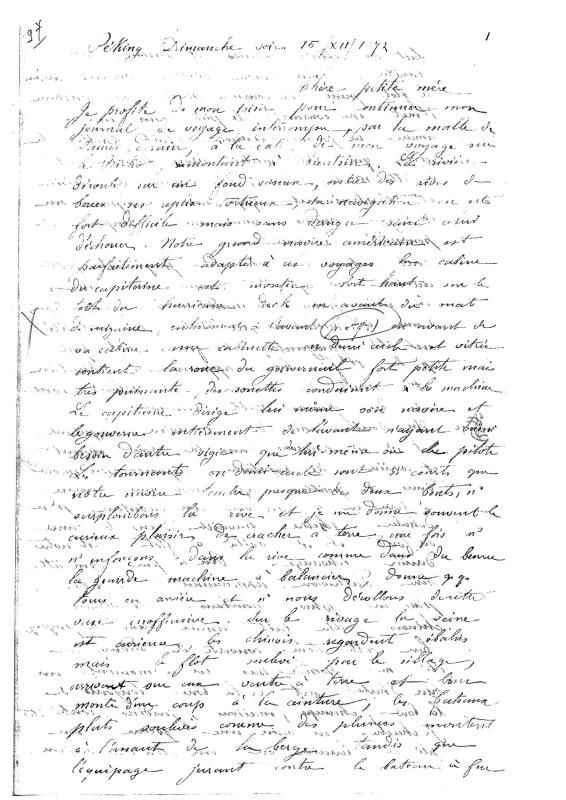 97 1
Péking Dimanche soir 15 /XII/1.72
chère petite mère
Je profite de mon loisir pour continuer mon
journal de voyage interrompu, par la malle de
à la de mon voyage
remontant La rivière
déroule sur un fond vaseux, entre des rives de
boue ses replis tortueux navigation est
fort difficile mais sans danger sauf celui
d'échouer. Notre grand navire américain est
parfaitement adapté à ces voyages la cabine
du capitaine est montée fort haut sur le
toit du hurricane deck en avant du mat
de misaine, entièrement à l'avant en avant de
sa cabine une cabinette en demi cercle et vitrée
contient la roue du gouvernail fort petite mais
très puissante, des sonettes conduisent à la machine
Le capitaine dirige lui même son navire et
le gouverne entièrement de l'avant n'ayant
besoin d'autre vigie que lui même ou le pilote
Les tournants en demi cercle sont si courts que
notre navire touche presque des deux bouts, ns
surplombons la rive et je me donne souvent le
curieux plaisir de cracher à terre, une fois ns
ns enfonçons dans la rive comme dans du beurre
la grande machine à balancier donne qq
tours en arrière et ns nous décollons de cette
vase inoffensive. Sur le rivage la scène
est curieuse, les chinois regardent ébahis
mais le flot soulevé par le sillage,
arrivant sur eux vautre à terre et leur
monte d'un coup à la ceinture, les bateaux
plats soulevés comme des plumes montent
à l'assaut de la berge tandis que
l'équipage jurant contre le bateau à feu